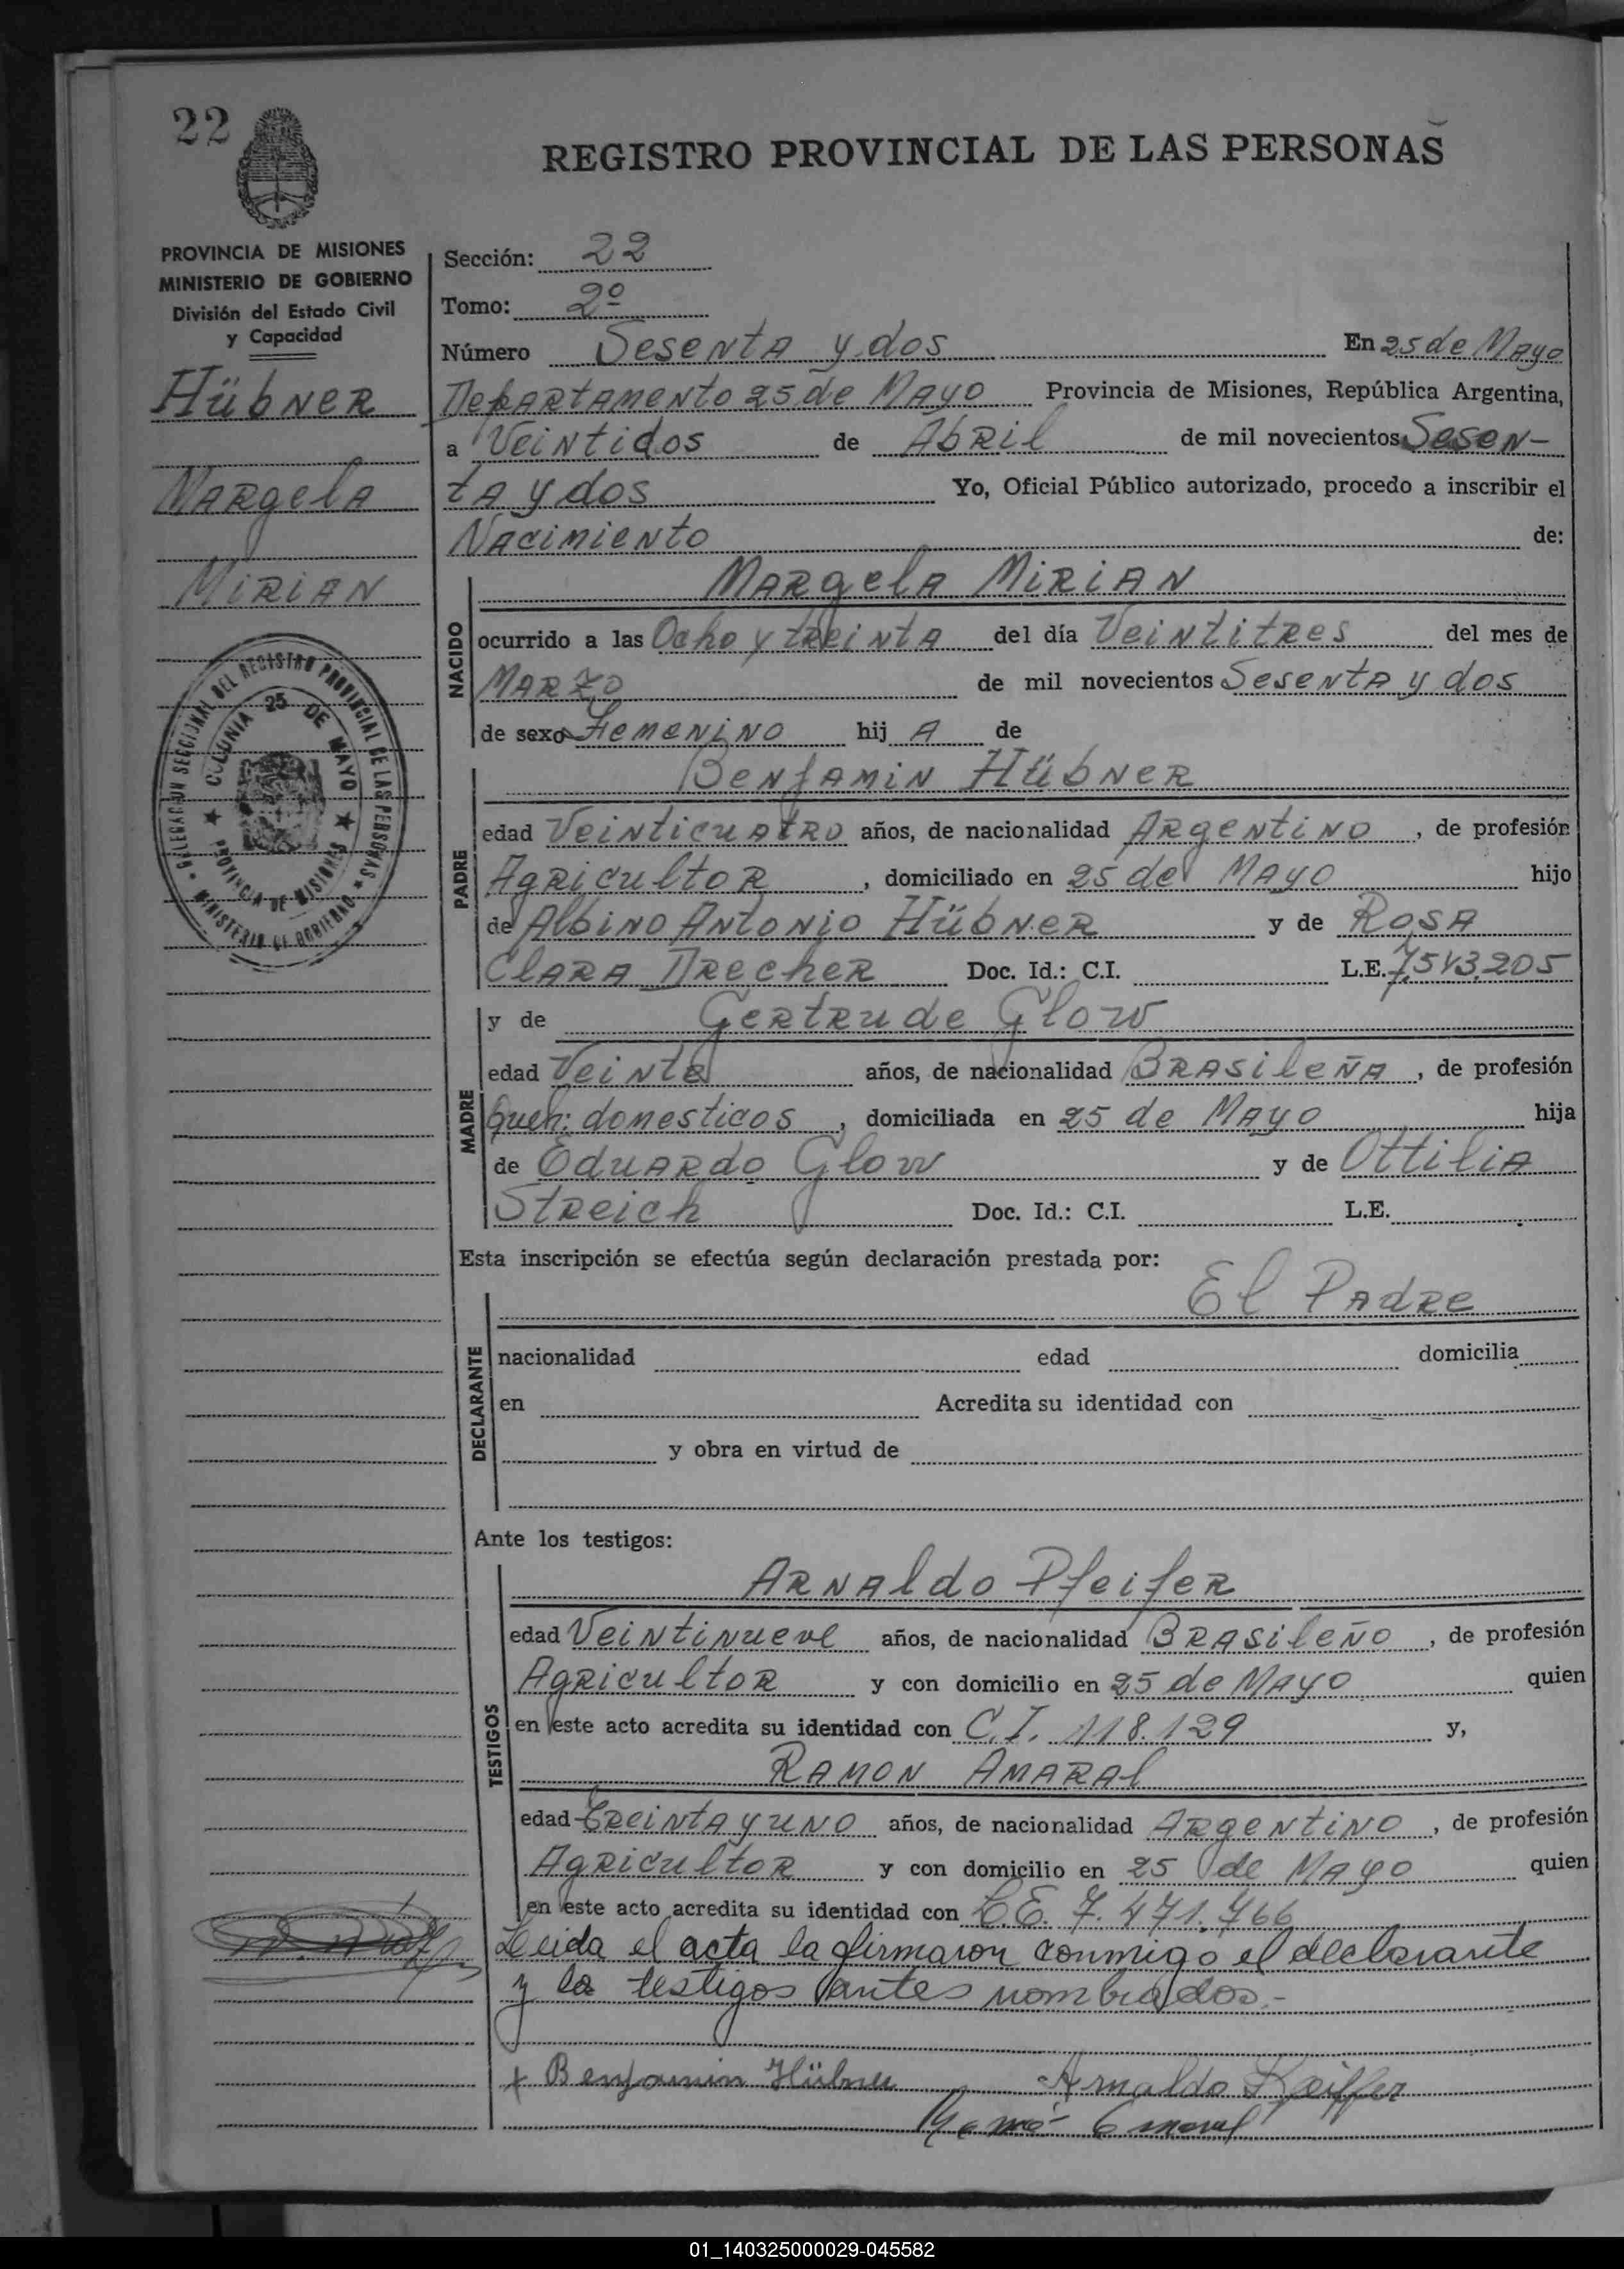 22
REGISTRO PROVINCIAL DE LAS PERSONAS
PROVINCIA DE MISIONES
MINISTERIO DE GOBIERNO
División del Estado Civil
y Capacidad
Hübner
Margela
Mirian
DELEGACION SECCIONAL DEL REGISTRO PROVINCIAL DE LAS PERSONAS
MINISTERIO DE GOBIERNO
COLONIA 25 DE MAYO
PROVINCIA DE MISIONES
Sección: 22
Tomo: 2º
Número Sesenta y dos En 25 de Mayo
Departamento 25 de Mayo Provincia de Misiones, República Argentina,
a Veintidos de Abril de mil novecientos Sesen-
ta y dos Yo, Oficial Público autorizado, procedo a inscribir el
Nacimiento de:
NACIDO
Margela Mirian
ocurrido a las Ocho y treinta del día Veintitres del mes de
Marzo de mil novecientos Sesenta y dos
de sexo Femenino hij A de
PADRE
Benjamin Hübner
edad Veinticuatro años, de nacionalidad Argentino, de profesión
Agricultor, domiciliado en 25 de Mayo hijo
de Albino Antonio Hübner y de Rosa
Clara Drecher Doc. Id.: C.I. L.E. 7.513.205
MADRE
y de Gertrude Glow
edad Veinte años, de nacionalidad Brasileña, de profesión
queh: domesticos, domiciliada en 25 de Mayo hija
de Eduardo Glow y de Ottilia
Streich Doc. Id.: C.I. L.E.
Esta inscripción se efectúa según declaración prestada por:
DECLARANTE
El Padre
nacionalidad edad domicilia
en Acredita su identidad con
y obra en virtud de
Ante los testigos:
TESTIGOS
Arnaldo Pfeifer
edad Veintinueve años, de nacionalidad Brasileño, de profesión
Agricultor y con domicilio en 25 de Mayo quien
en este acto acredita su identidad con C.I. 118.129 y,
Ramon Amaral
edad treinta y uno años, de nacionalidad Argentino, de profesión
Agricultor y con domicilio en 25 de Mayo quien
en este acto acredita su identidad con L.E. 7.471.766
Leida el acta la firmaron conmigo el declarante
y los testigos antes nombrados.-
+ Benjamin Hübner Arnaldo Pfeiffer
01_140325000029-045582